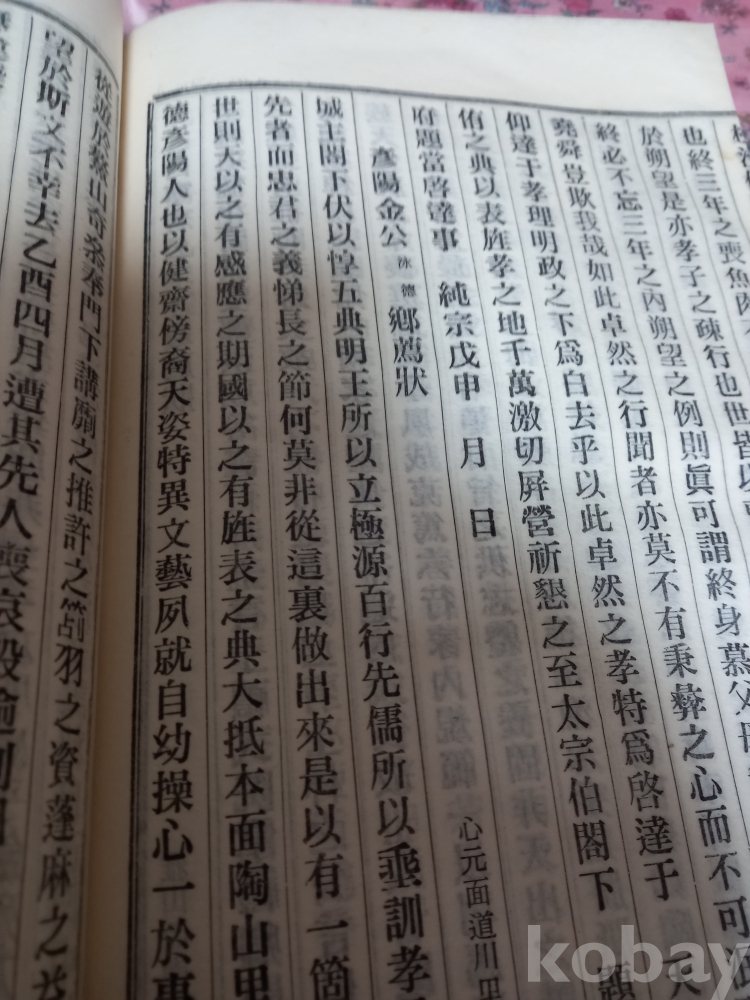 也終三年之喪魚肉
於朔望是亦孝子之疎行也世皆以
終必不忘三年之內朔望之例則眞可謂終身慕父母
堯舜豈欺我哉如此卓然之行聞者亦莫不有秉彝之心而不可
仰達于孝理明政之下爲白去乎以此卓然之孝特爲啓達于 天
侑之典以表旌孝之地千萬激切屛營祈懇之至太宗伯閤下 題
府題當啓達事 純宗戊甲 月 日
彥陽金公 泳德 鄕薦狀 心元面道川里
城主閤下伏以惇五典明王所以立極源百行先儒所以垂訓孝
先者而忠君之義悌長之節何莫非從這裏做出來是以有一箇
世則天以之有感應之期國以之有旌表之典大抵本面陶山里
德彥陽人也以健齋傍裔天姿特異文藝夙就自幼操心一於事
從遊於 山奇 奉門下講 之推許之 羽之資蓬麻之
望於斯文不幸去乙酉四月遭其先人喪哀毀逾制
kobay